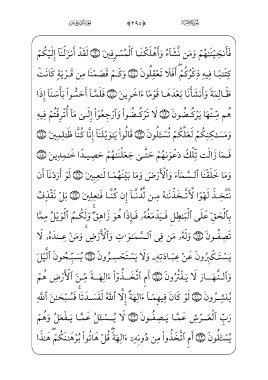 فَأَنجَيْنَٰهُمْ وَمَن نَّشَآءُ وَأَهْلَكْنَا ٱلْمُسْرِفِينَ ۝ لَقَدْ أَنزَلْنَآ إِلَيْكُمْ
كِتَٰبًا فِيهِ ذِكْرُكُمْ ۖ أَفَلَا تَعْقِلُونَ ۝ وَكَمْ قَصَمْنَا مِن قَرْيَةٍ كَانَتْ
ظَالِمَةً وَأَنشَأْنَا بَعْدَهَا قَوْمًا ءَاخَرِينَ ۝ فَلَمَّآ أَحَسُّوا۟ بَأْسَنَآ إِذَا
هُم مِّنْهَا يَرْكُضُونَ ۝ لَا تَرْكُضُوا۟ وَٱرْجِعُوٓا۟ إِلَىٰ مَآ أُتْرِفْتُمْ فِيهِ
وَمَسَٰكِنِكُمْ لَعَلَّكُمْ تُسْـَٔلُونَ ۝ قَالُوا۟ يَٰوَيْلَنَآ إِنَّا كُنَّا ظَٰلِمِينَ ۝
فَمَا زَالَت تِّلْكَ دَعْوَىٰهُمْ حَتَّىٰ جَعَلْنَٰهُمْ حَصِيدًا خَٰمِدِينَ ۝
وَمَا خَلَقْنَا ٱلسَّمَآءَ وَٱلْأَرْضَ وَمَا بَيْنَهُمَا لَٰعِبِينَ ۝ لَوْ أَرَدْنَآ أَن
نَّتَّخِذَ لَهْوًا لَّٱتَّخَذْنَٰهُ مِن لَّدُنَّآ إِن كُنَّا فَٰعِلِينَ ۝ بَلْ نَقْذِفُ
بِٱلْحَقِّ عَلَى ٱلْبَٰطِلِ فَيَدْمَغُهُۥ فَإِذَا هُوَ زَاهِقٌ ۚ وَلَكُمُ ٱلْوَيْلُ مِمَّا
تَصِفُونَ ۝ وَلَهُۥ مَن فِى ٱلسَّمَٰوَٰتِ وَٱلْأَرْضِ ۚ وَمَنْ عِندَهُۥ لَا
يَسْتَكْبِرُونَ عَنْ عِبَادَتِهِۦ وَلَا يَسْتَحْسِرُونَ ۝ يُسَبِّحُونَ ٱلَّيْلَ
وَٱلنَّهَارَ لَا يَفْتُرُونَ ۝ أَمِ ٱتَّخَذُوٓا۟ ءَالِهَةً مِّنَ ٱلْأَرْضِ هُمْ
يُنشِرُونَ ۝ لَوْ كَانَ فِيهِمَآ ءَالِهَةٌ إِلَّا ٱللَّهُ لَفَسَدَتَا ۚ فَسُبْحَٰنَ ٱللَّهِ
رَبِّ ٱلْعَرْشِ عَمَّا يَصِفُونَ ۝ لَا يُسْـَٔلُ عَمَّا يَفْعَلُ وَهُمْ
يُسْـَٔلُونَ ۝ أَمِ ٱتَّخَذُوا۟ مِن دُونِهِۦٓ ءَالِهَةً ۖ قُلْ هَاتُوا۟ بُرْهَٰنَكُمْ ۖ هَٰذَا